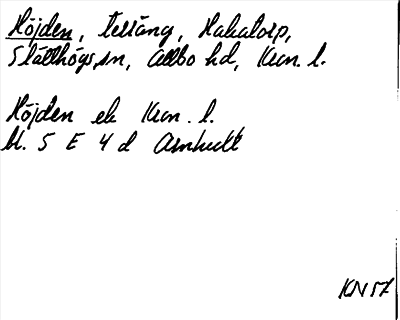 Höjden, terräng, Hakatorp,
Slätthögs sn, Allbo hd, Kron. l.
Höjden ek Kron. l.
bl. 5 E 4 d
KN 57